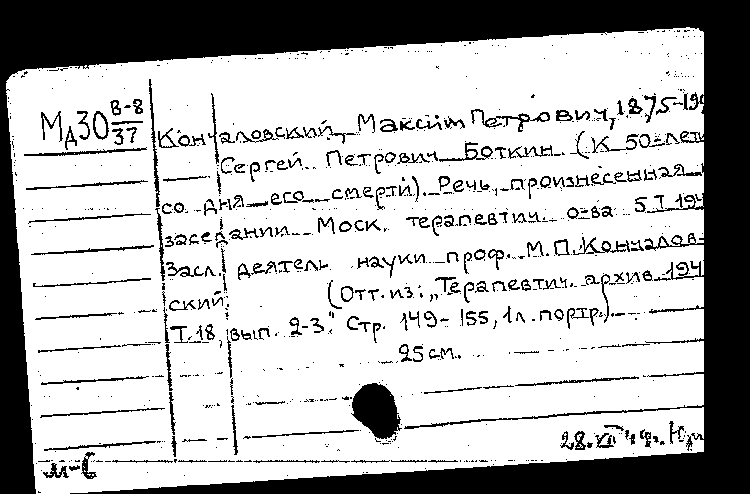 Мд30 В-8/37
Кончаловский, Максим Петрович, 1875-194
Сергей Петрович Боткин (К 50-лети
со дня его смерти). Речь, произнесенная
заседании Моск. терапевтич. о-ва 5.I 194
Засл. деятель науки проф. М.П.Кончалов-
ский. (Отт. из: „Терапевтич. архив 194
Т.18, вып. 2-3". Стр. 149-155, 1л. портр.)
25 см.
28.XII
м-б